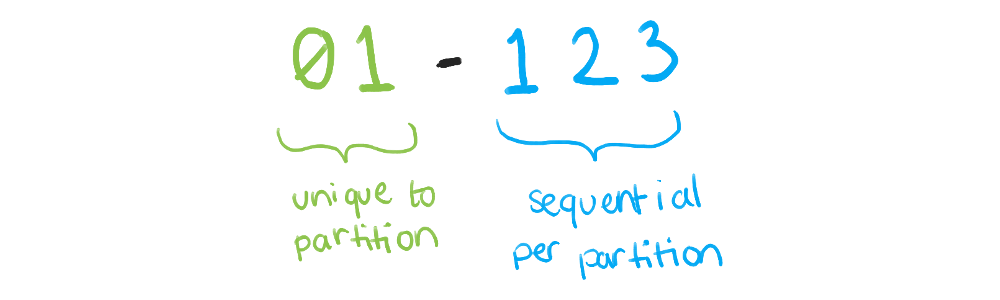 01 - 123
unique to
partition
sequential
per partition